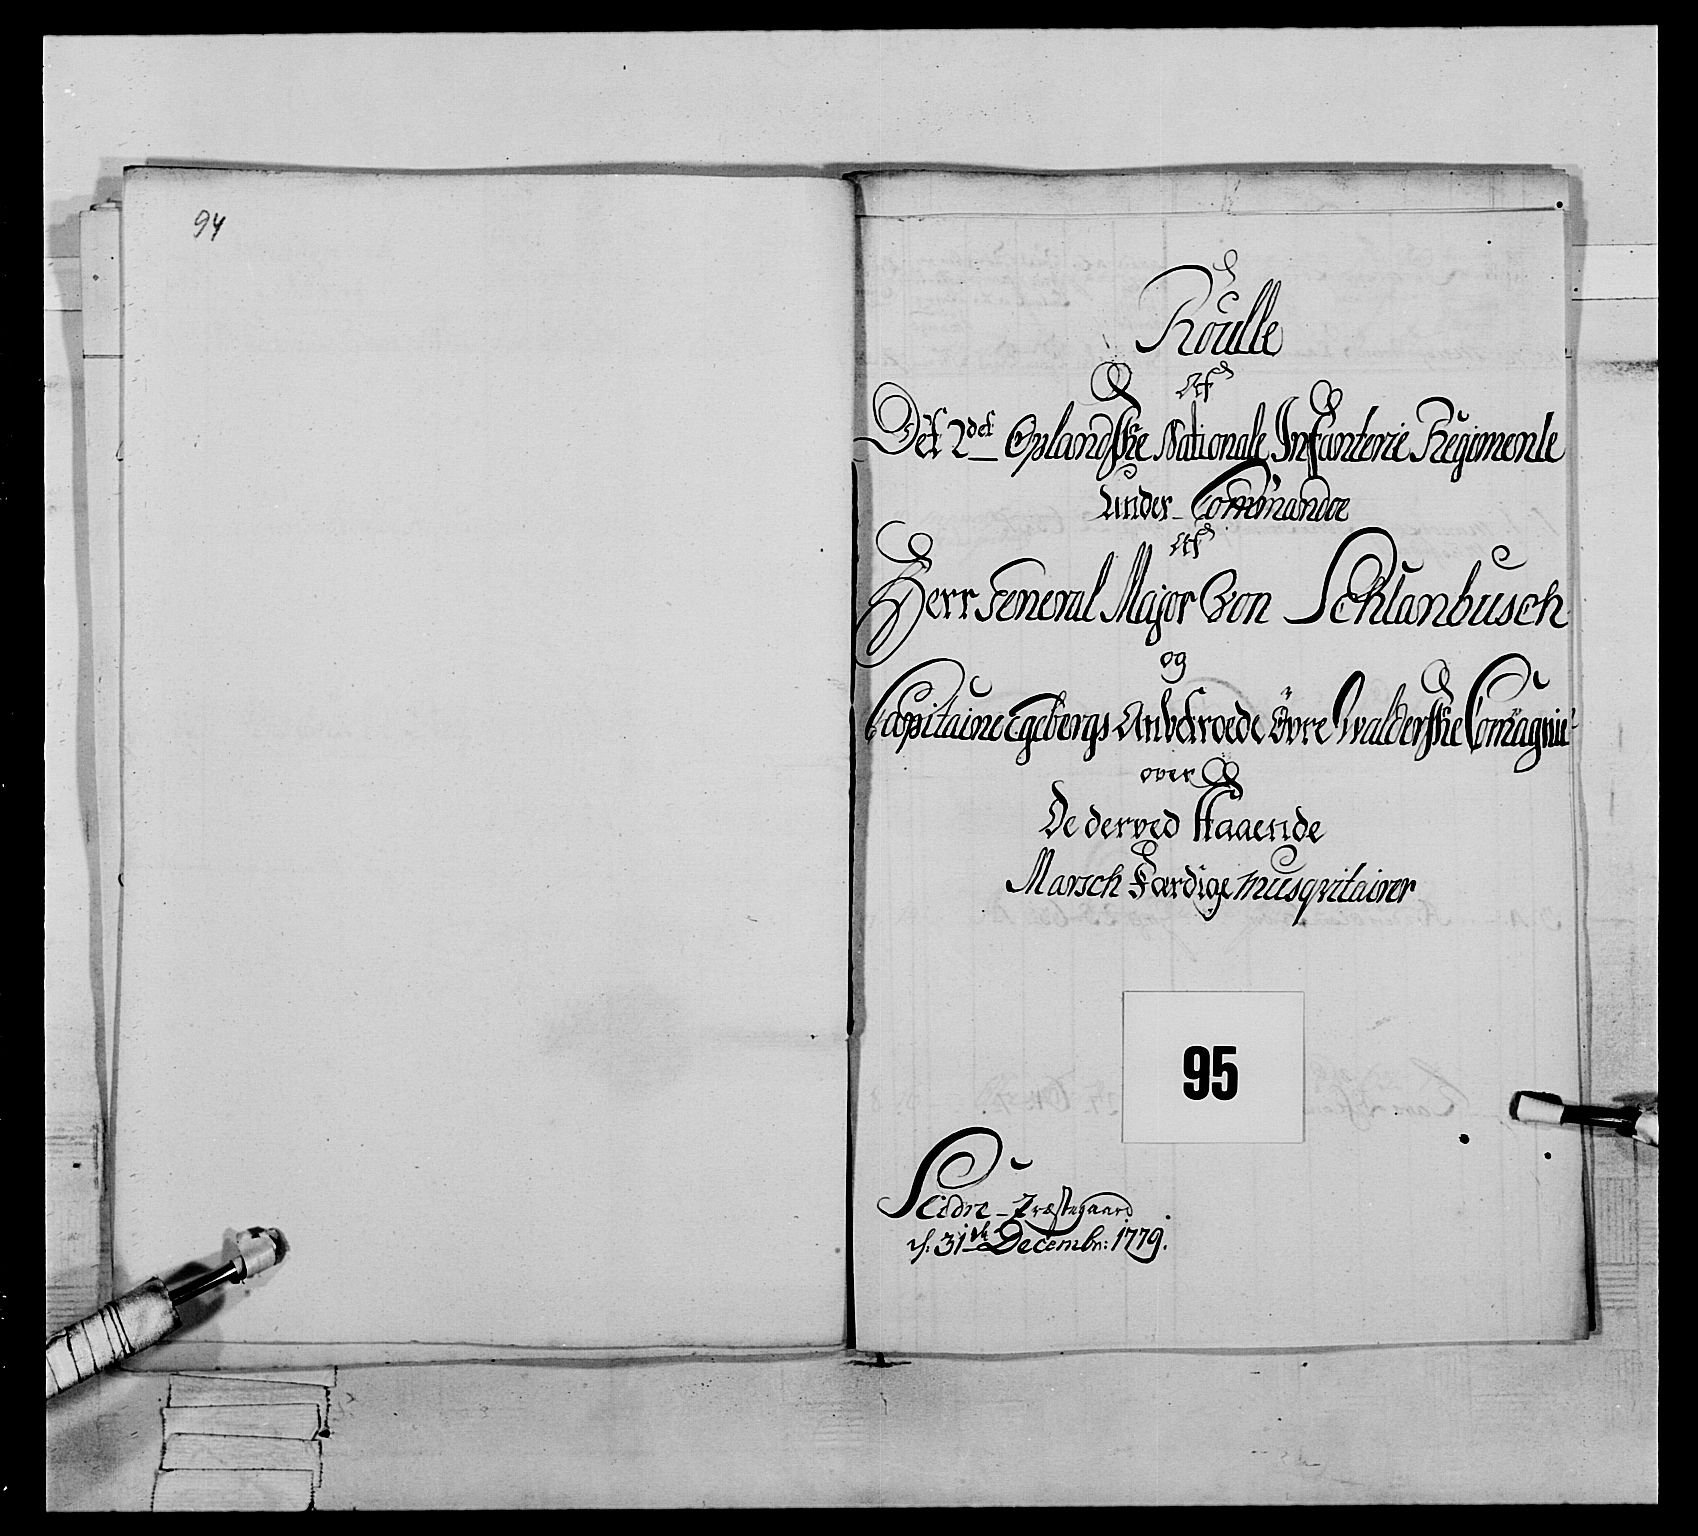 94
Roulle
Af
Det 2det Oplandske Nationale Infanterie Regimente
Under Commandoe
Af
Herr General Major Von Schlanbusch
og
Capitaine Egebergs Anbetroede Övre Walderske Comagnie
over
De derved staaende
Marsch Færdige Musqvitairer
95
Præstegaard
d: 31te Decembr: 1779.